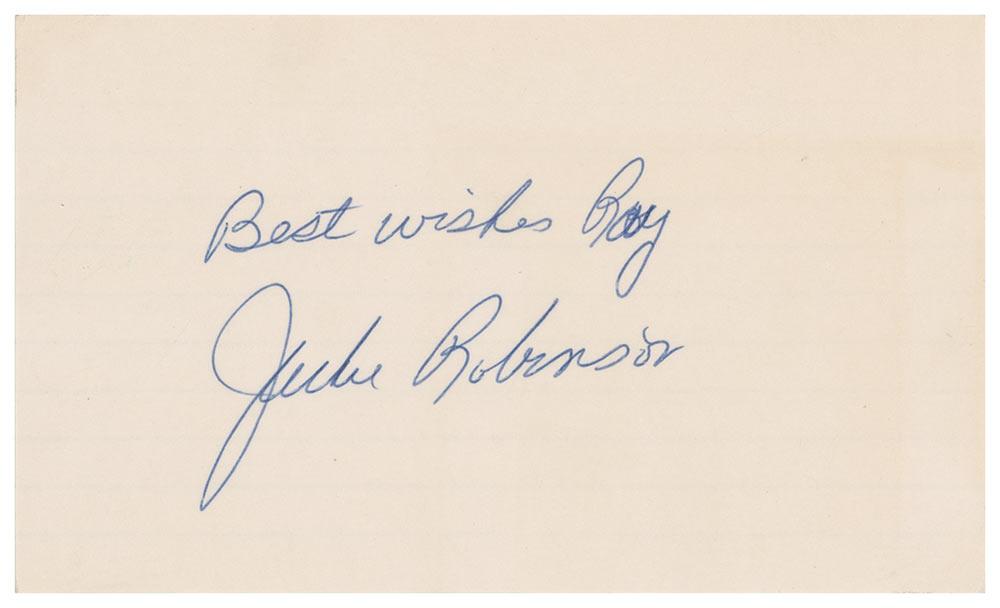 Best wishes Ray
Jackie Robinson